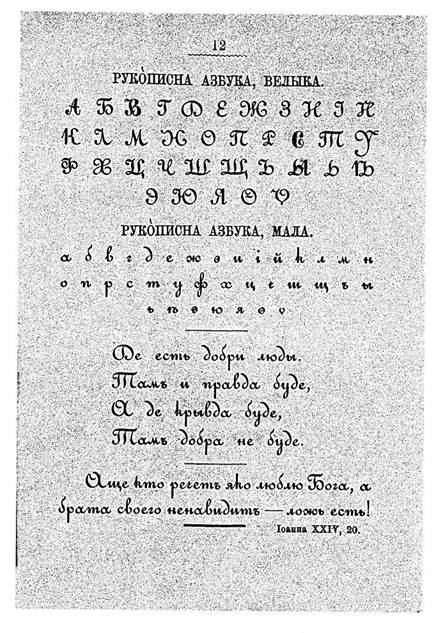 12
РУКО̀ПИСНА АЗБУКА, ВЕЛЫКА.
А Б В Г Д Е Ж З Н І Й
К Л М Н О П Р С Т У
Ф Х Ц Ч Ш Щ Ъ Ы Ь Ѣ
Э Ю Я Ѳ Ѵ
РУКО̀ПИСНА АЗБУКА, МАЛА.
а б в г д е ж з и і й к л м н
о п р с т у ф х ц ч ш щ ъ ы
ь ѣ э ю я ѳ ѵ
Де есть добри люды.
Тамъ и правда буде,
А де крывда буде,
Тамъ добра не буде.
Аще кто речетъ яко люблю Бога, а
брата своего ненавидитъ — ложь есть!
Іоанна XXIV, 20.